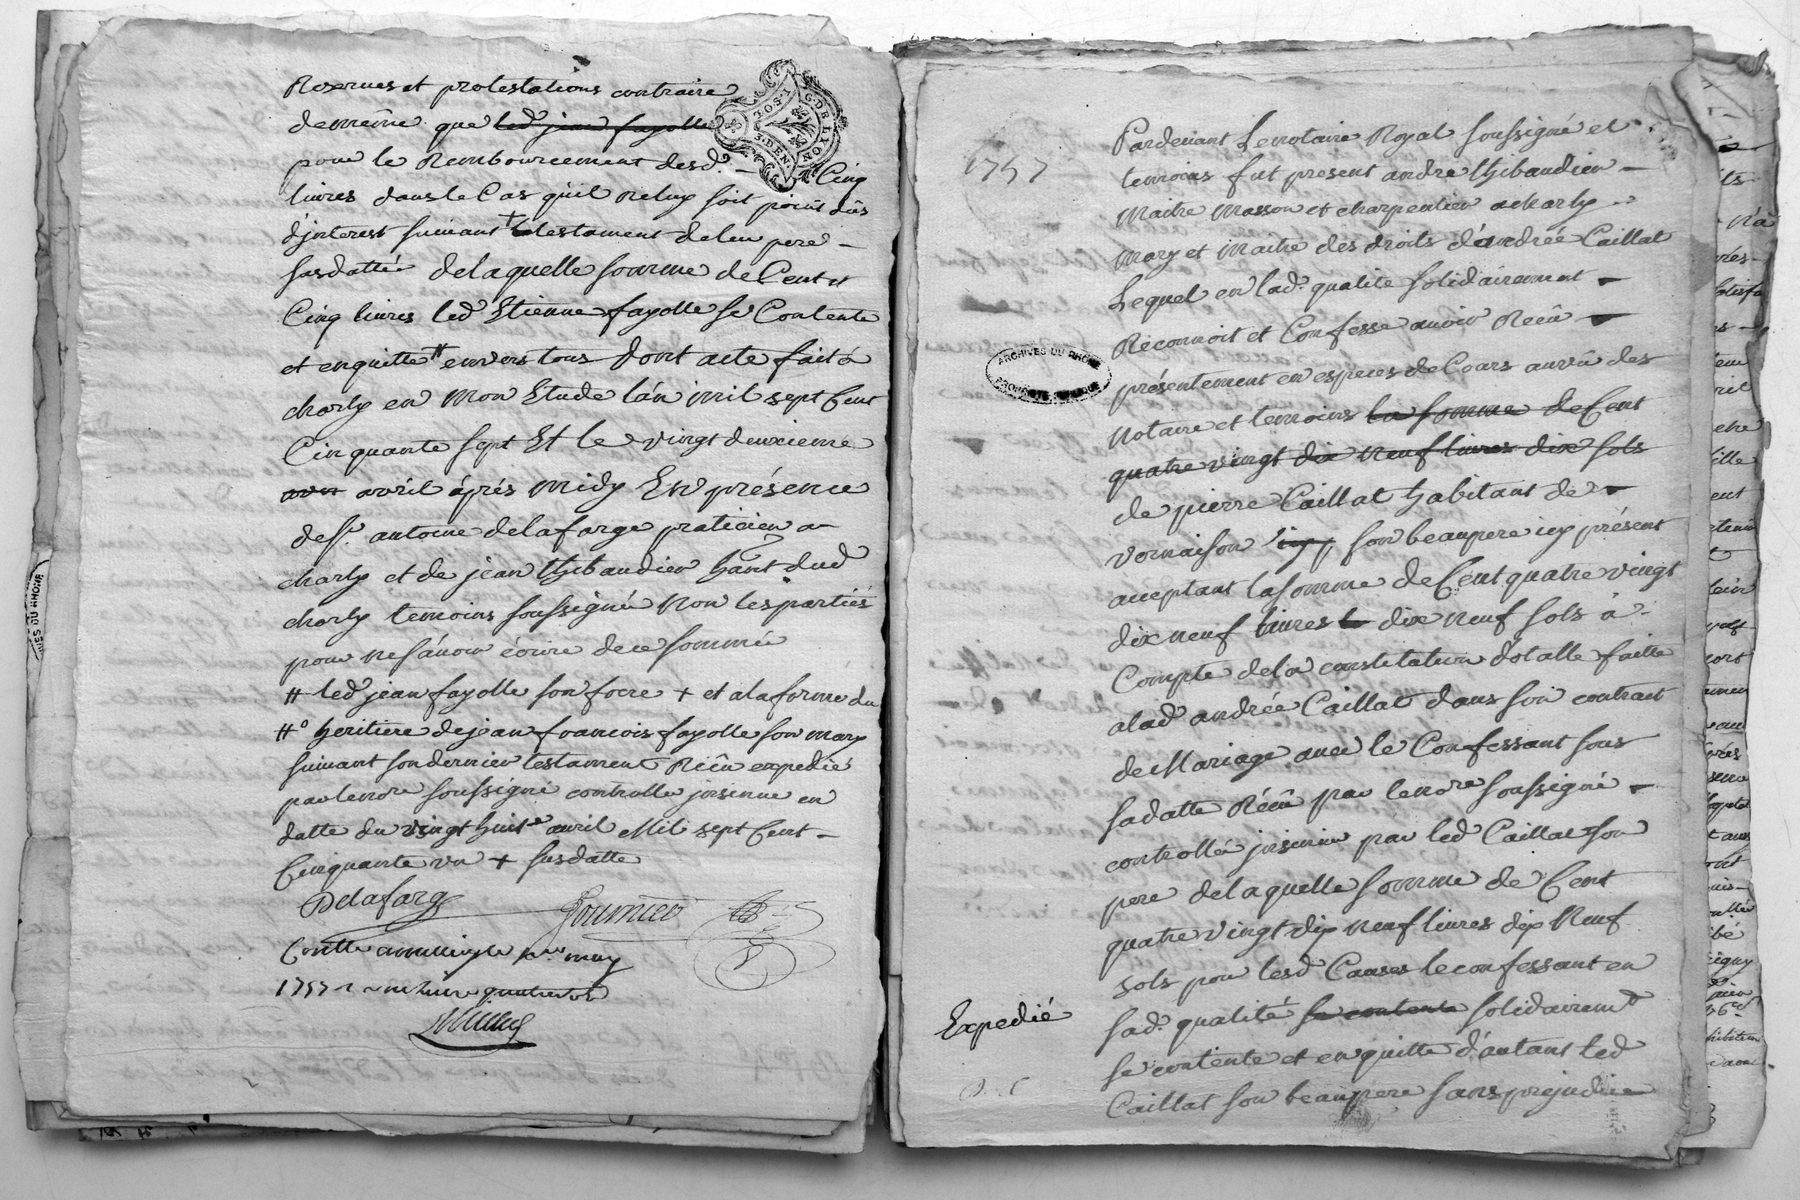 Reserves et protestations contraire
demême que led jean fayolle
pour le Rembourcement desd. - Cinq
livres dans le Cas quil ne luy soit point dûs
d'jnterest suivant + le testament de leu pere -
susdatté delaquelle somme de Cent et
Cinq livres led Etienne fayolle se Contente
et enquitte # envers tous Dont acte fait à
charly en mon Etude lán mil sept Cent
Cinquante sept Et le vingt deuxieme
avril áprés midy En présence
de sr. antoine delafarge praticien a
charly et de jean thibaudier hant dud
charly temoins soussigné Non les parties
pour ne sávoir écrire de ce sommé
# led jean fayolle son frere + et a la forme du
#o heritiere de jean francois fayolle son mary
suivant son dernier testament Réçû expedié
par le nore soussigné controllé jnsinué en
datte du vingt huit avril Mil sept Cent -
Cinquante un + susdatte
Delafarge Fournier
1757
L.SOL.
3.DEN.
G.DE LYON
1757
Pardevant Le notaire Royal soussigné et
temoins fut present andre thibaudier -
Maitre Masson et charpentier a charly
Mary et Maitre des droits d'andréé Caillat
Lequel en lad. qualité solidairement -
Réconnoit et Confesse avoir Réçû -
présentement en especes de Cours au vû des
Notaire et temoins la somme de Cent
quatre vingt dix neuf livres dix sols
de pierre Caillat habitant de -
vernaison icy son beaupere icy présent
acceptant la somme de Cent quatre vingt
dix neuf livres dix neuf sols à
Compte de la constitution dotalle faitte
a lad andréé Caillat dans son contract
de Mariage avec le Confessant sous
sa datte Réçû par le nore soussigné -
controllé jnsinué par led Caillat son
pere de laquelle somme de Cent
quatre vingt dix neuf livres dix Neuf
sols pour lesd Causes le confessant en
Expedié
sad. qualité se contente solidairemt
se contente et en quitte d'autant led
Caillat son beaupere sans prejudice
ARCHIVES DU RHONE